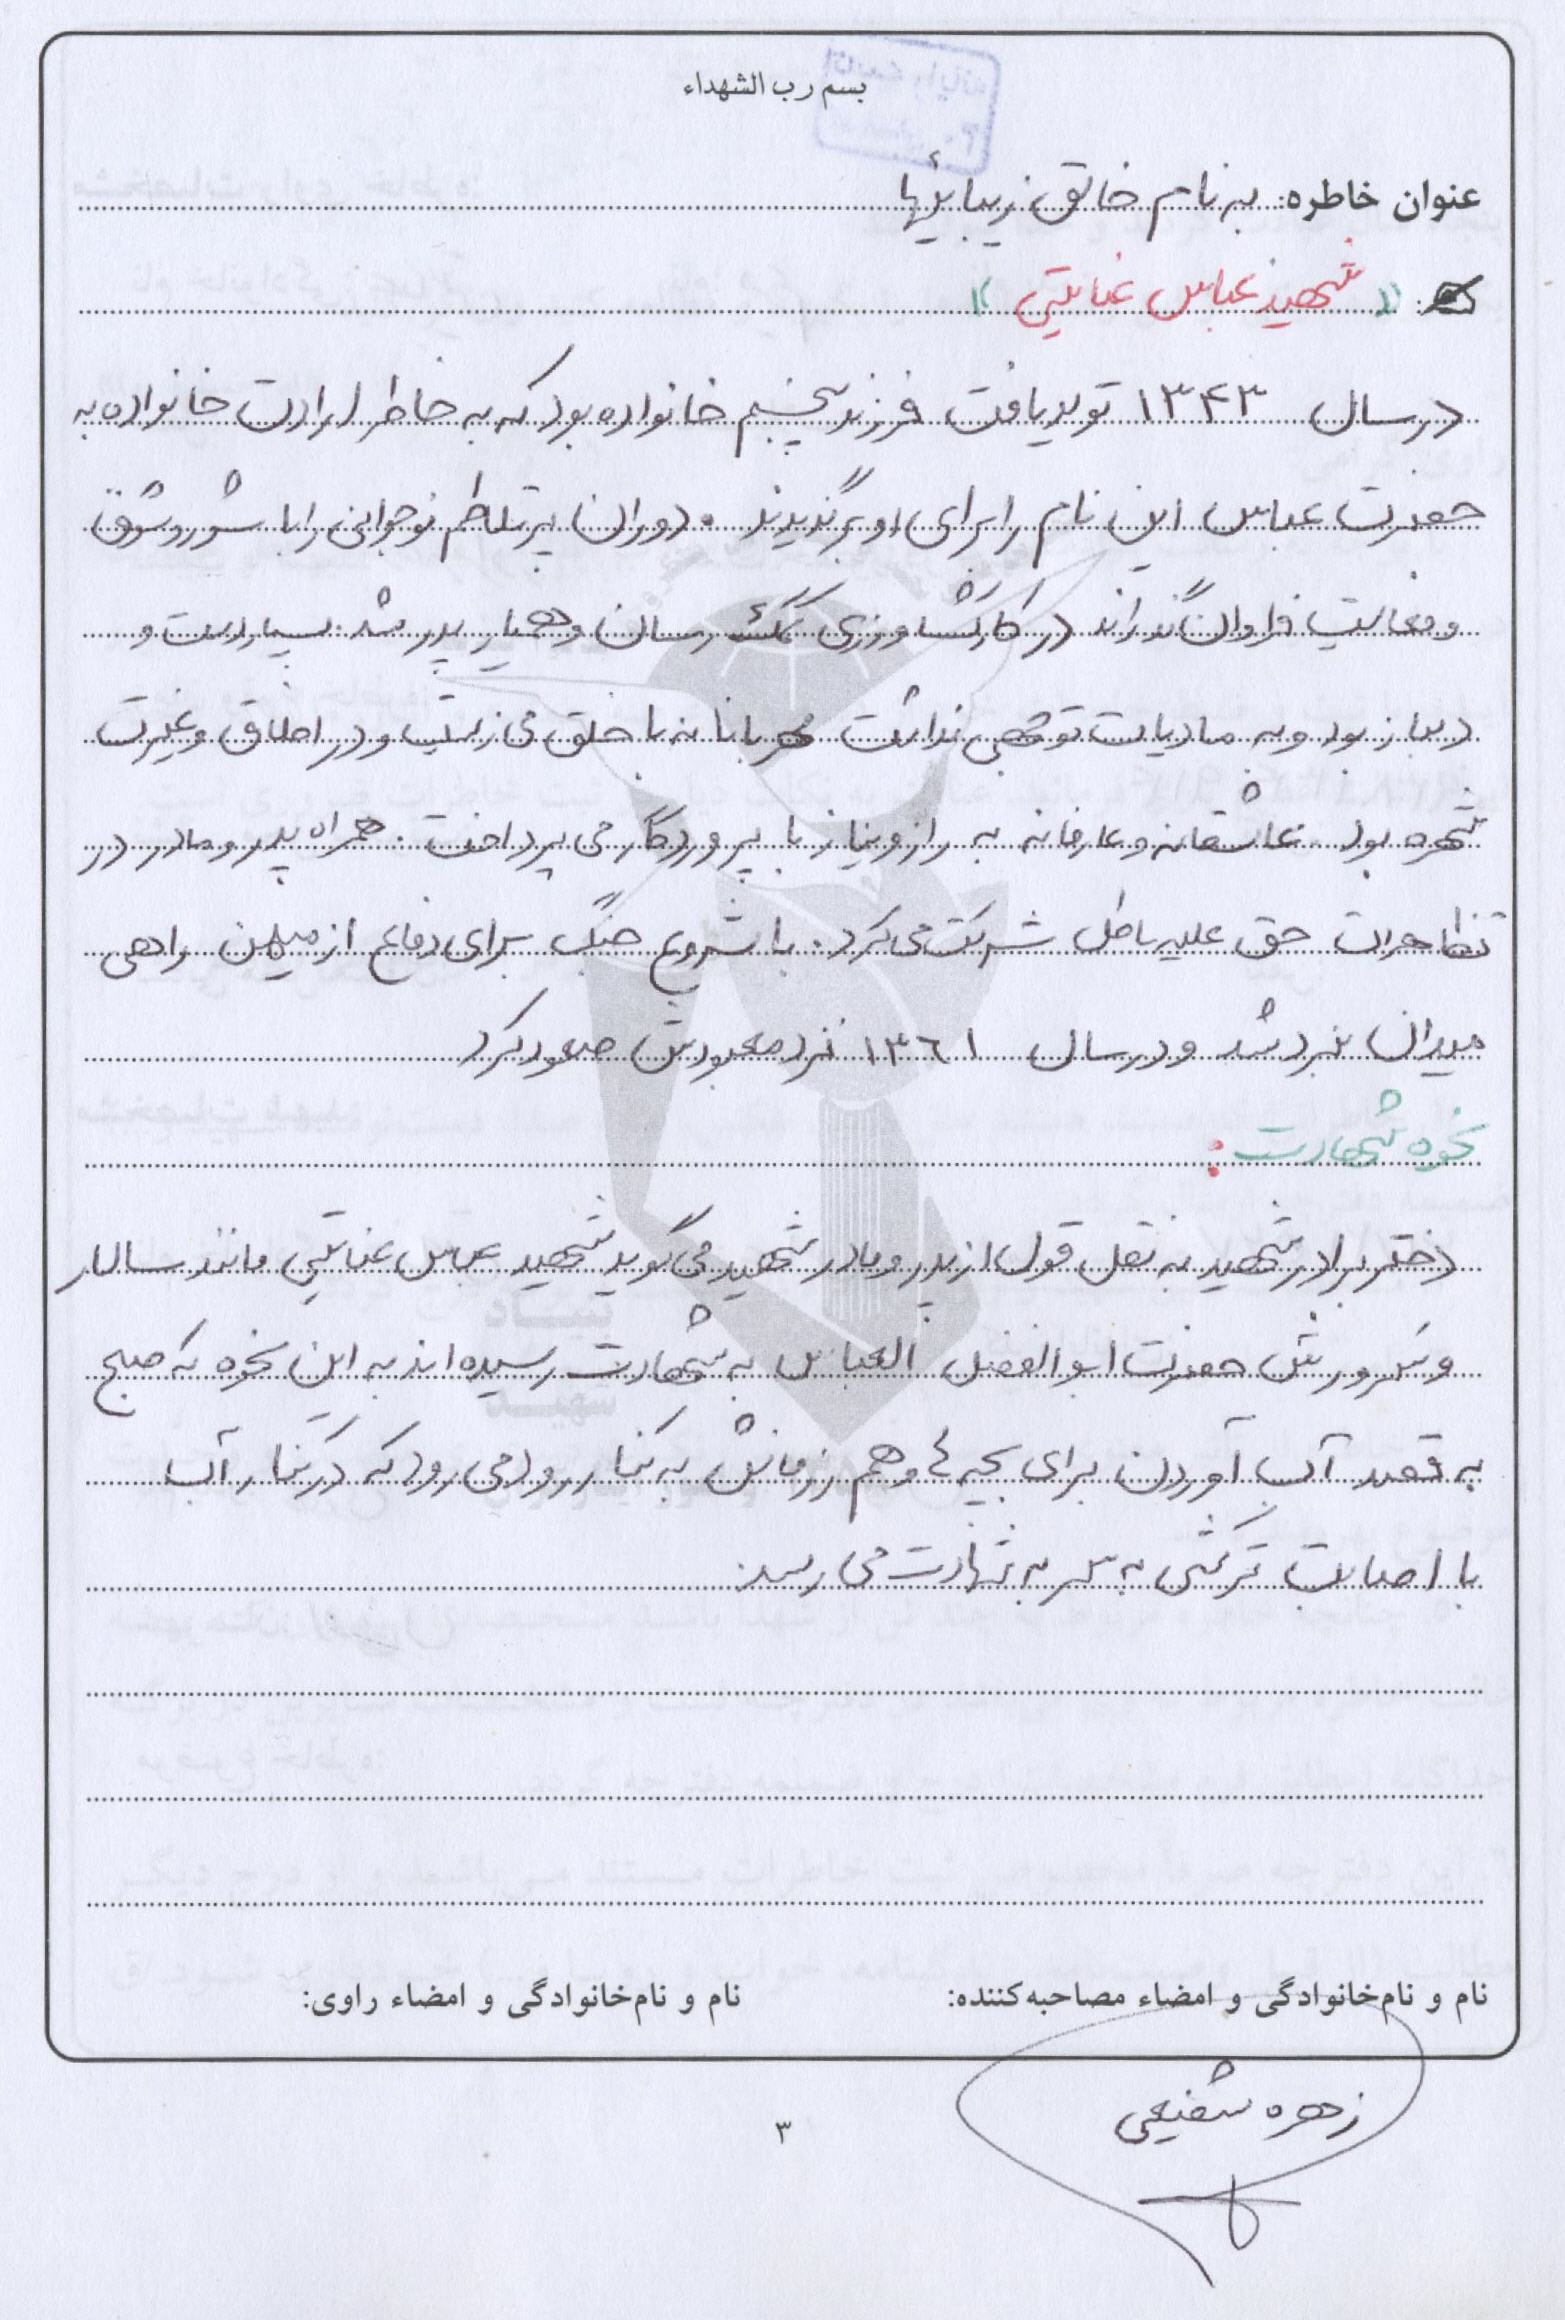 بسم رب الشهداء
عنوان خاطره: به نام خالق زیبائیها
« شهید عباس عنایتی »
در سال ۱۳۴۳ تولد یافت فرزند پنجم خانواده بود که به خاطر ارادت خانواده به
حضرت عباس این نام را برای او برگزیدند . دوران پرتلاطم نوجوانی را با شور و شوق
و فعالیت فراوان گذراند در کار کشاورزی کمک رسان و همیار پدر شد. بسیار دست و
دلباز بود و به مادیات توجهی نداشت مهربانانه با خلق می زیست و در اخلاق و غیرت
شهره بود . عاشقانه و عارفانه به راز و نیاز با پروردگار می پرداخت . همراه پدر و مادر در
تظاهرات حق علیه باطل شرکت می کرد . با شروع جنگ برای دفاع از میهن راهی
میدان نبرد شد و در سال ۱۳٦۱ نزد معبودش صعود کرد
نحوه شهادت :
دختر برادر شهید به نقل قول از پدر و مادر شهید می گوید شهید عباس عنایتی مانند سالار
و سرورش حضرت ابوالفضل العباس به شهادت رسیده اند به این نحوه که صبح
به قصد آب آوردن برای بچه و هم رزمانش به کنار رود می رود که در کنار آب
با اصابت ترکشی به سر به شهادت می رسد.
نام و نام‌خانوادگی و امضاء مصاحبه‌کننده: نام و نام‌خانوادگی و امضاء راوی:
زهره شفیعی
۳